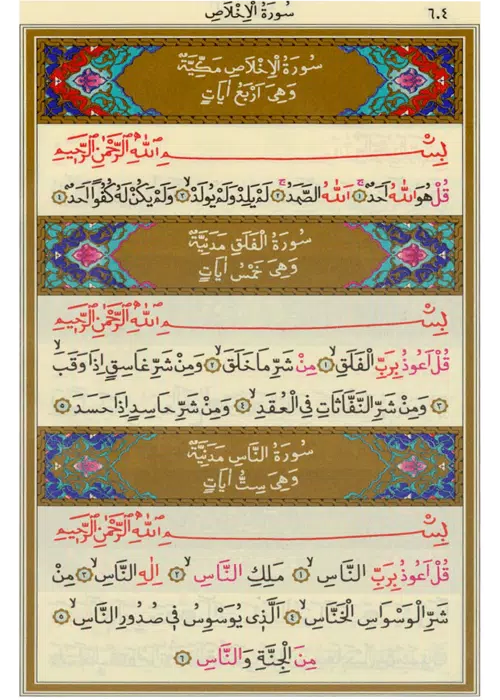 ٦٠٤ سُورَةُ الْاِخْلَاصِ
سُورَةُ الْاِخْلَاصِ مَكِّيَّةٌ
وَهِىَ اَرْبَعُ اٰيَاتٍ
بِسْمِ اللّٰهِ الرَّحْمٰنِ الرَّحٖيمِ
قُلْ هُوَ اللّٰهُ اَحَدٌۚ ﴿١﴾ اَللّٰهُ الصَّمَدُۚ ﴿٢﴾ لَمْ يَلِدْ وَلَمْ يُولَدْۙ ﴿٣﴾ وَلَمْ يَكُنْ لَهُ كُفُوًا اَحَدٌ ﴿٤﴾
سُورَةُ الْفَلَقِ مَدَنِيَّةٌ
وَهِىَ خَمْسُ اٰيَاتٍ
بِسْمِ اللّٰهِ الرَّحْمٰنِ الرَّحٖيمِ
قُلْ اَعُوذُ بِرَبِّ الْفَلَقِۙ ﴿١﴾ مِنْ شَرِّ مَا خَلَقَۙ ﴿٢﴾ وَمِنْ شَرِّ غَاسِقٍ اِذَا وَقَبَۙ
﴿٣﴾ وَمِنْ شَرِّ النَّفَّاثَاتِ فِى الْعُقَدِۙ ﴿٤﴾ وَمِنْ شَرِّ حَاسِدٍ اِذَا حَسَدَ ﴿٥﴾
سُورَةُ النَّاسِ مَدَنِيَّةٌ
وَهِىَ سِتُّ اٰيَاتٍ
بِسْمِ اللّٰهِ الرَّحْمٰنِ الرَّحٖيمِ
قُلْ اَعُوذُ بِرَبِّ النَّاسِۙ ﴿١﴾ مَلِكِ النَّاسِۙ ﴿٢﴾ اِلٰهِ النَّاسِۙ ﴿٣﴾ مِنْ
شَرِّ الْوَسْوَاسِ الْخَنَّاسِۙ ﴿٤﴾ اَلَّذٖى يُوَسْوِسُ فٖى صُدُورِ النَّاسِۙ ﴿٥﴾
مِنَ الْجِنَّةِ وَالنَّاسِ ﴿٦﴾